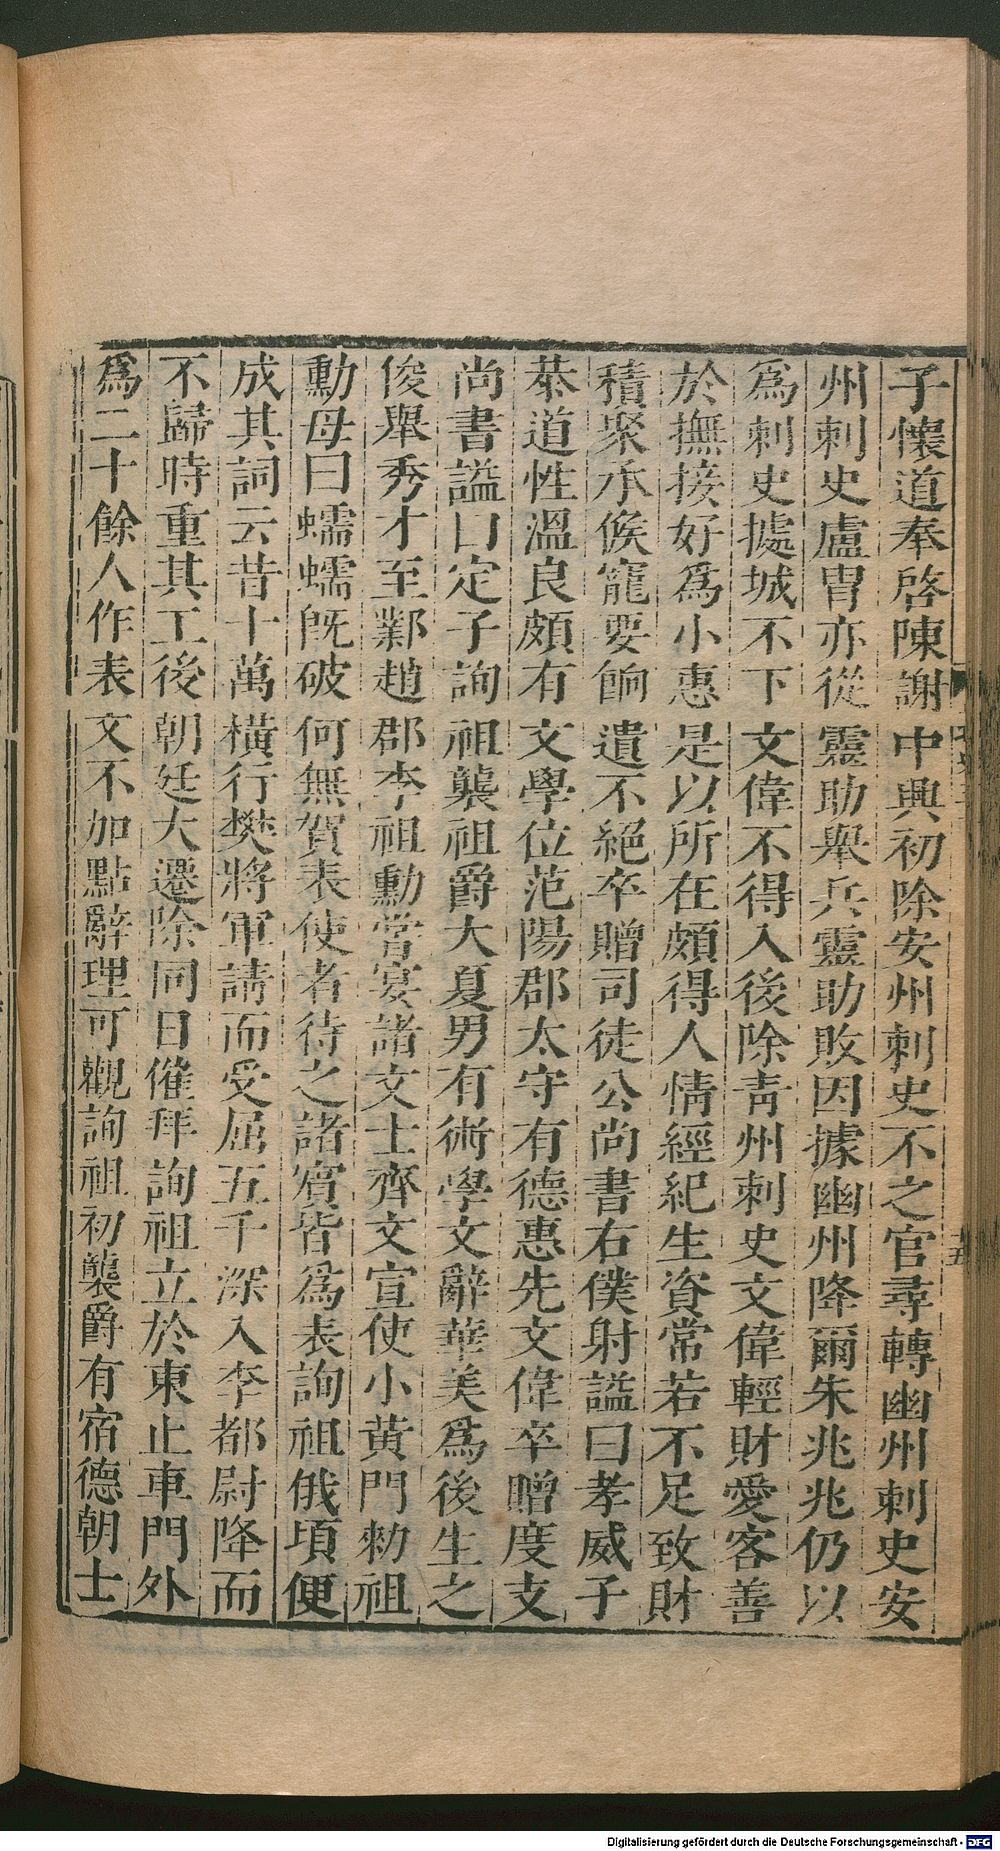 子懷道奉啓陳謝中興初除安州刺史不之官尋轉幽州刺史安
州刺史盧冑亦從靈助舉兵靈助敗因據幽州降爾朱兆兆仍以
爲刺史據城不下文偉不得入後除靑州刺史文偉輕財愛客善
於撫接好爲小惠是以所在頗得人情經紀生資常若不足致財
積聚承候寵要餉遺不絕卒贈司徒公尚書右僕射謚曰孝威子
恭道性溫良頗有文學位范陽郡太守有德惠先文偉卒贈度支
尚書謚曰定子詢祖襲祖爵大夏男有術學文辭華美爲後生之
俊舉秀才至鄴趙郡李祖勳嘗宴諸文士齊文宣使小黃門勑祖
勳母曰蠕蠕旣破何無賀表使者待之諸賓皆爲表詢祖俄頃便
成其詞云昔十萬橫行樊將軍請而受屈五千深入李都尉降而
不歸時重其工後朝廷大遷除同日催拜詢祖立於東止車門外
爲二十餘人作表文不加點辭理可觀詢祖初襲爵有宿德朝士
十五
Digitalisierung gefördert durch die Deutsche Forschungsgemeinschaft - DFG